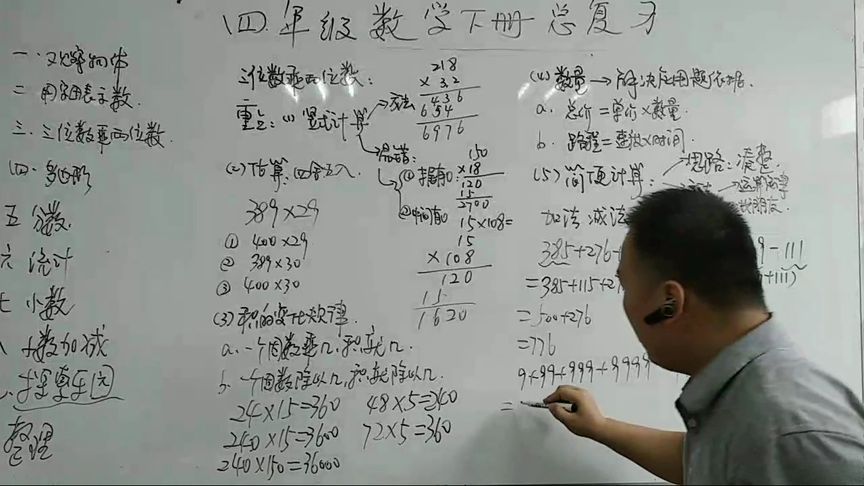 四年级数学下册总复习
一.观察物体
二 用字母表示数.
三.三位数乘两位数.
四.多边形
五 分数.
六 流计
七 小数
小数加减
探索乐园
整理
三位数乘两位数:
重点:(1)竖式计算→方法
218
×32
436
654
6976
→易错:
①末尾有0
150
×18
120
15
2700
②中间有0
15×108=
15
×108
120
15
1620
(2)估算:四舍五入
389×29
① 400×29
② 389×30
③ 400×30
(3)积的变化规律.
a.一个因数乘几,积就乘几.
b.一个因数除以几,积就除以几.
24×15=360
240×15=3600
240×150=36000
48×5=240
72×5=360
(4)数量→解决应用题依据.
a.总价=单价×数量.
b.路程=速度×时间.
(5)简便计算:
思路:凑整.
加法 减法
385+276+
=385+115+2
=500+276
=776
9-111
111)
9+99+999+9999
=